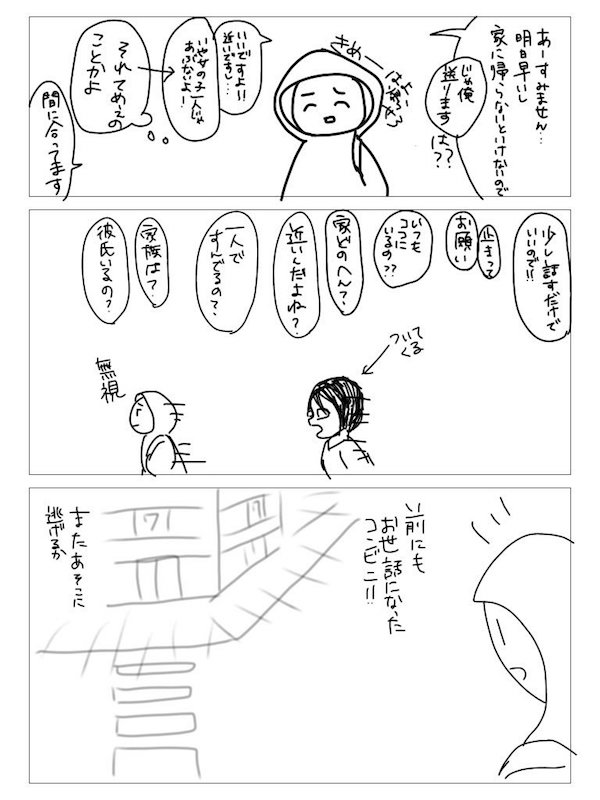 あーすみません…
明日早いし
家に帰らないといけないので
じゃ俺
送ります
は??
きめー
いいですよ!!
近いですし…
いや女の子一人じゃ
あぶないよー!
それてめぇの
ことかよ
間に合ってます
少し話すだけで
いいので!!
止まって
お願い
いつも
ココに
いるの??
家どのへん?
近いんだよね?
一人で
すんでるの?
家族は?
彼氏いるの?
ついて
くる
無視
以前にも
お世話になった
コンビニ!!
またあそこに
逃げるか